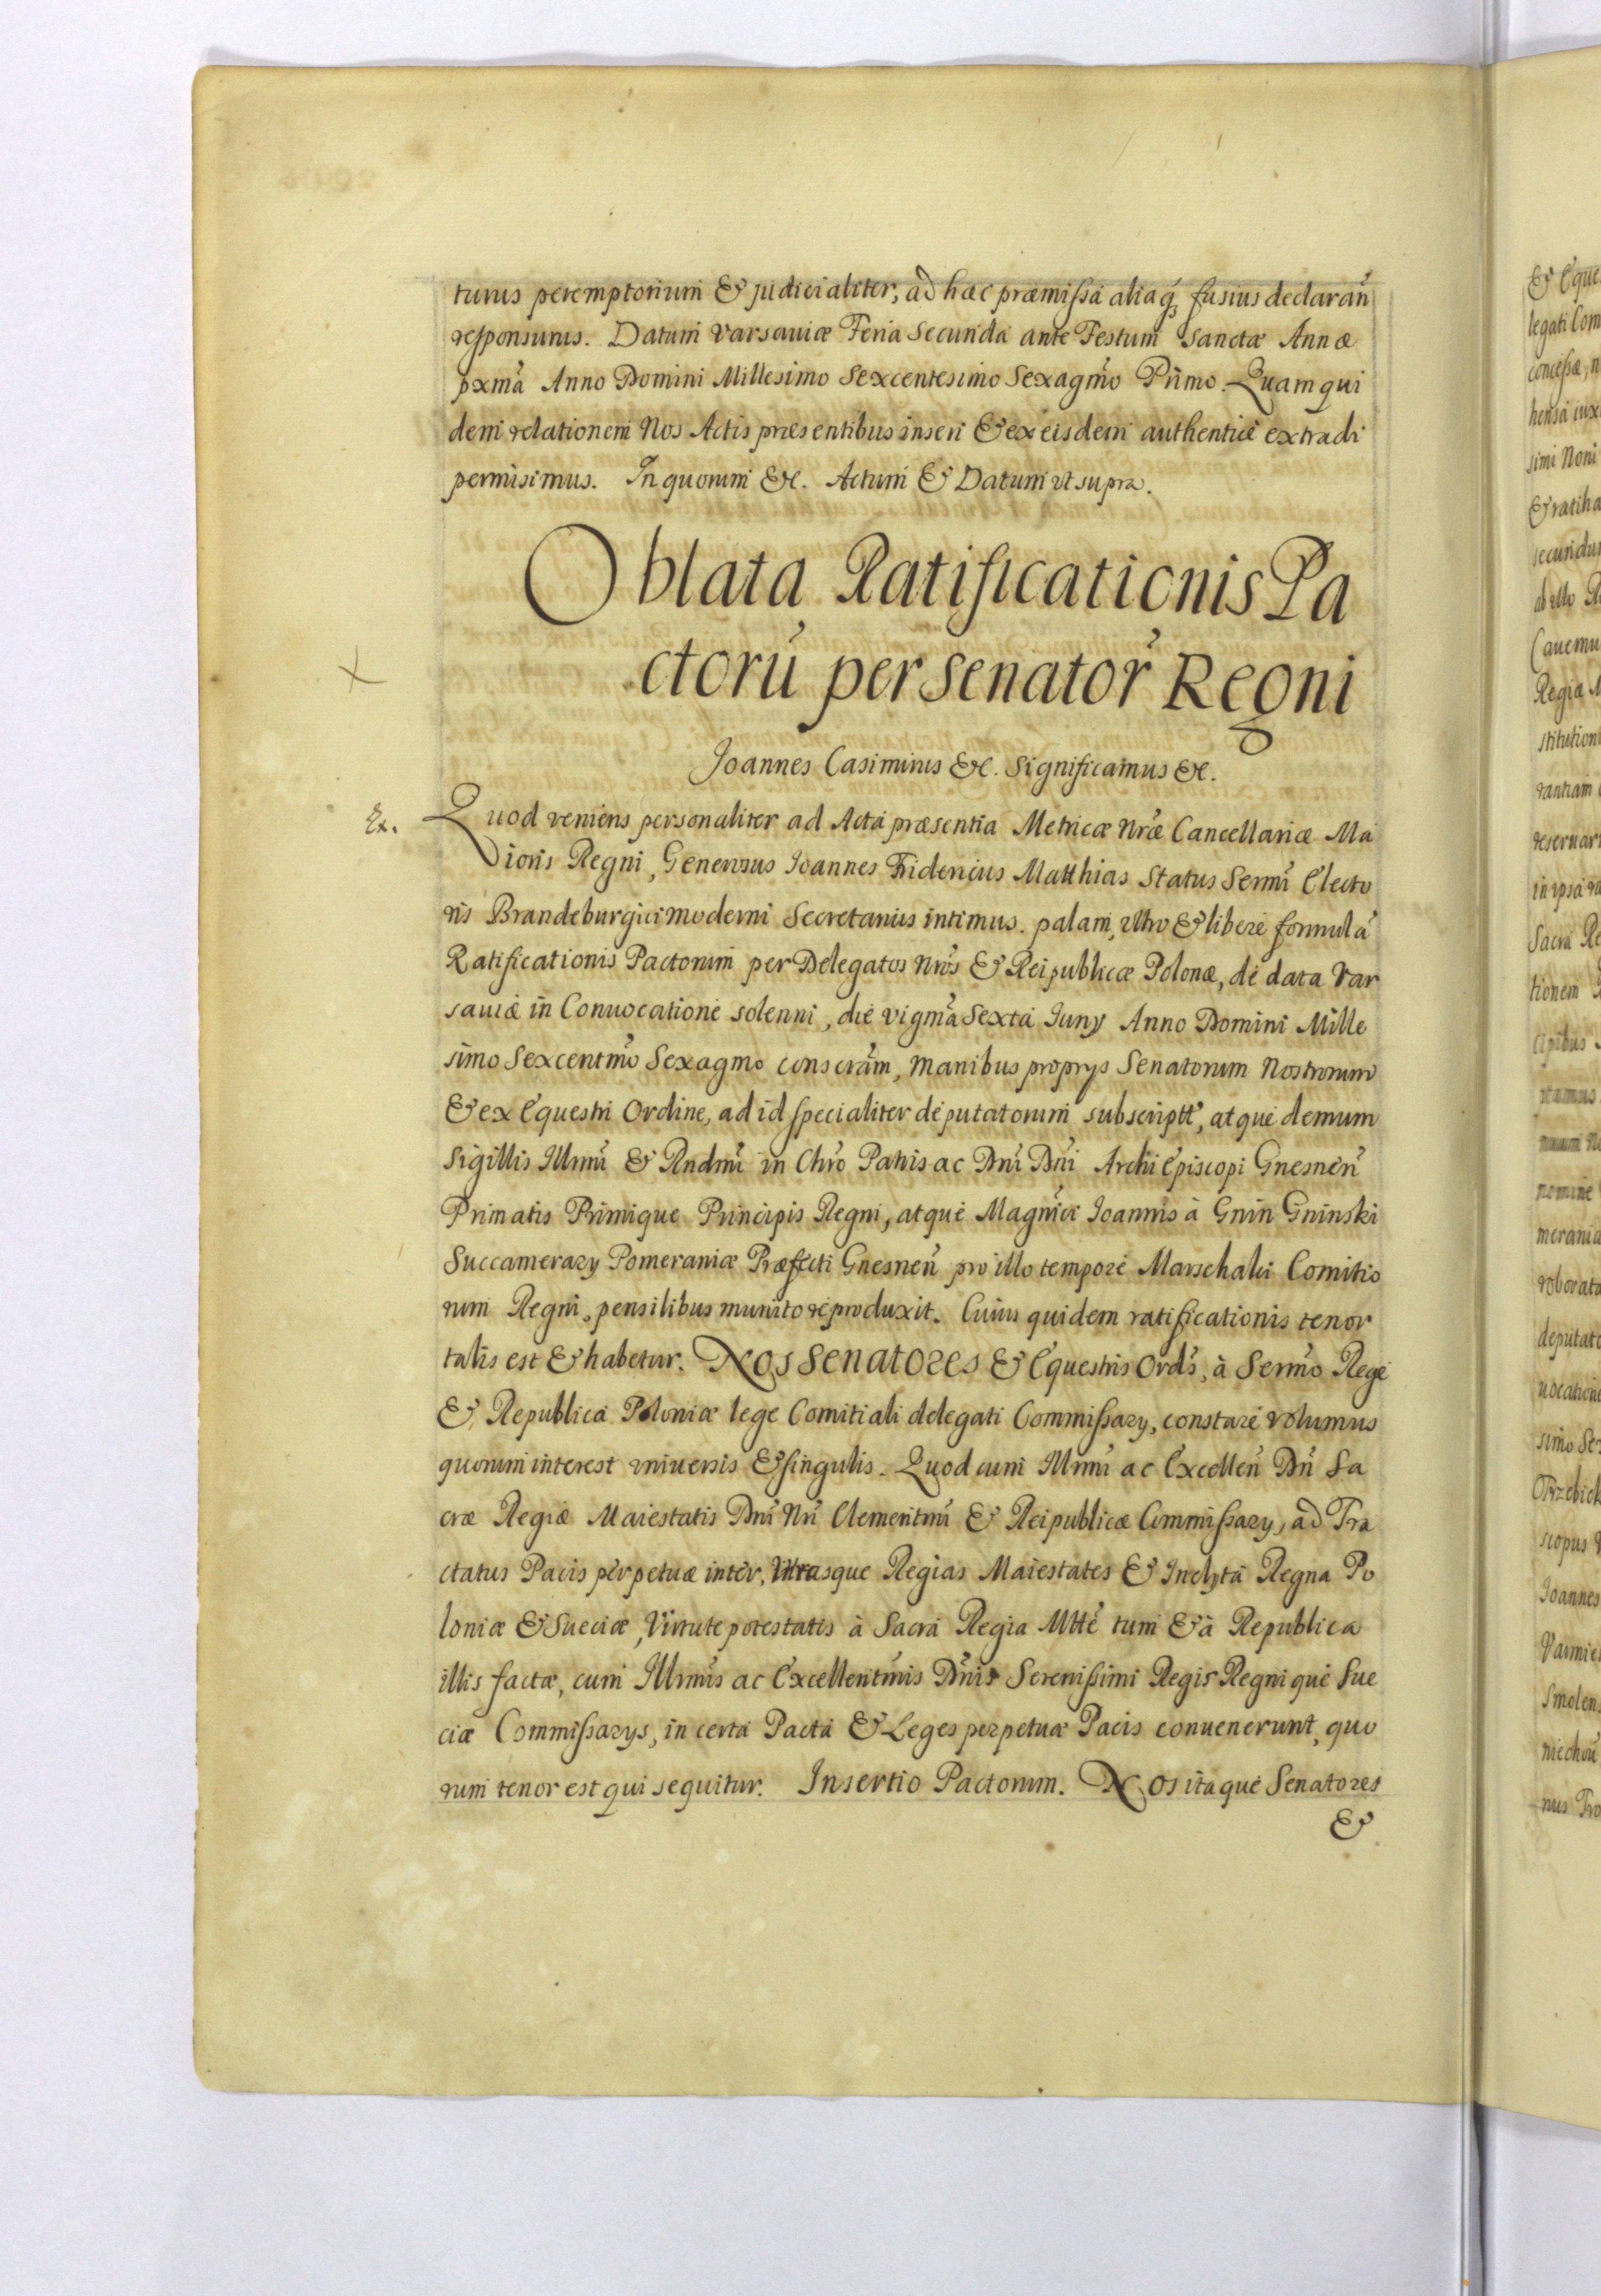 turus peremptorium & judicialiter, ad haec praemissa aliaq₃ fusius declarañ
responsurus. Datum Varsaviæ Feria Secunda ante Festum Sanctæ Annæ
pxmã Anno Domini Millesimo Sexcentesimo Sexagm̃o Primo. Quam qui
dem relationem Nos Actis præsentibus inseri & ex eisdem authentice extradi
permisimus. In quorum &c. Actum & Datum ut supra.
Oblata Ratificationis Pa
ctorũ per Senator̃ Regni
Joannes Casimirus &c. Significamus &c.
Ex.
Quod veniens personaliter ad Acta præsentia Metricæ Nrã̃e Cancellariæ Ma
Joris Regni, Generosus Joannes Fridericus Matthias Status Serm̃i Electo
ris Brandeburgici moderni Secretarius intimus. palam, ultro & libere formulã
Ratificationis Pactorum per Delegatos Nrõs & Reipublicæ Polonæ, de data Var
saviæ in Convocatione solenni, die vigm̃a Sexta Juny Anno Domini Mille
simo Sexcentm̃o Sexagmo conscrãm, manibus proprys Senatorum Nostrorum
& ex Equestri Ordine, ad id specialiter deputatorum subscriptt̃, atque demum
Sigillis Illmi̇̃ & Rndm̃i in Chr̃o Patris ac Dnĩ Dnĩ Archi Episcopi Gnesneñ
Primatis Primique Principis Regni, atque Magnĩci Joannis à Gnin Gninski
Succamerary Pomeraniæ Præfecti Gnesneñ pro illo tempore Marschalci Comitio
rum Regni, pensilibus munito reproduxit. Cuius quidem ratificationis tenor
talis est & habetur. Nos Senatores & Equestris Ord̃s, à Serm̃o Rege
& Republica Poloniæ lege Comitiali delegati Commissary, constare volumus
quorum interest universis & singulis. Quod cum Illmĩ ac Excelleñ Dñ Sa
cræ Regiæ Maiestatis Dnĩ Nrĩ Clementm̃i & Reipublicæ Commissary, ad Tra
ctatus Pacis perpetuæ inter, Utrasque Regias Maiestates & Inclyta Regna Po
loniæ & Sueciæ, Virtute potestatis à Sacra Regia Mtte̋ tum & à Republica
illis factæ, cum Illmĩs ac Excellentm̃is Dñis Serenissimi Regis Regnique Sue
ciæ Commissarys, in certa Pacta & Leges perpetuæ Pacis convenerunt, quo
rum tenor est qui sequitur. Insertio Pactorum. Nos itaque Senatores
&